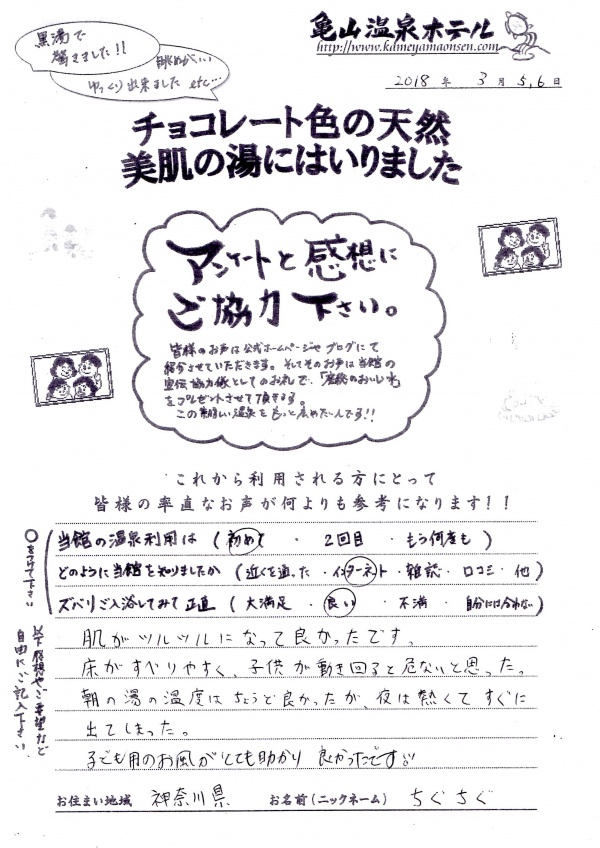 黒湯で
驚きました!!
眺めがいい
ゆっくり出来ました etc...
亀山温泉ホテル
http://www.kameyamaonsen.com
2018年 3月 5,6日
チョコレート色の天然
美肌の湯にはいりました
アンケートと感想に
ご協力下さい。
皆様のお声は公式ホームページやブログにて
紹介させていただきます。そしてそのお声は当館の
宣伝協力係としてのお礼で、「のおいしい水」
をプレゼントさせて頂きます。
この素晴しい温泉をもっと広めたいんです!!
これから利用される方にとって
皆様の率直なお声が何よりも参考になります!!
○をつけて下さい
当館の温泉利用は (初めて ・ 2回目 ・ もう何度も)
どのように当館を知りましたか (近くを通った ・ インターネット ・ 雑誌 ・ 口コミ ・ 他)
ズバリご入浴してみて正直 (大満足 ・ 良い ・ 不満 ・ 自分には合わない)
以下感想やご希望など
自由にご記入下さい
肌がツルツルになって良かったです。
床がすべりやすく、子供が動き回ると危ないと思った。
朝の湯の温度はちょうど良かったが、夜は熱くてすぐに
出てしまった。
子ども用のお風がとても助かり良かったです。
お住まい地域 神奈川県 お名前(ニックネーム) ちぐちぐ